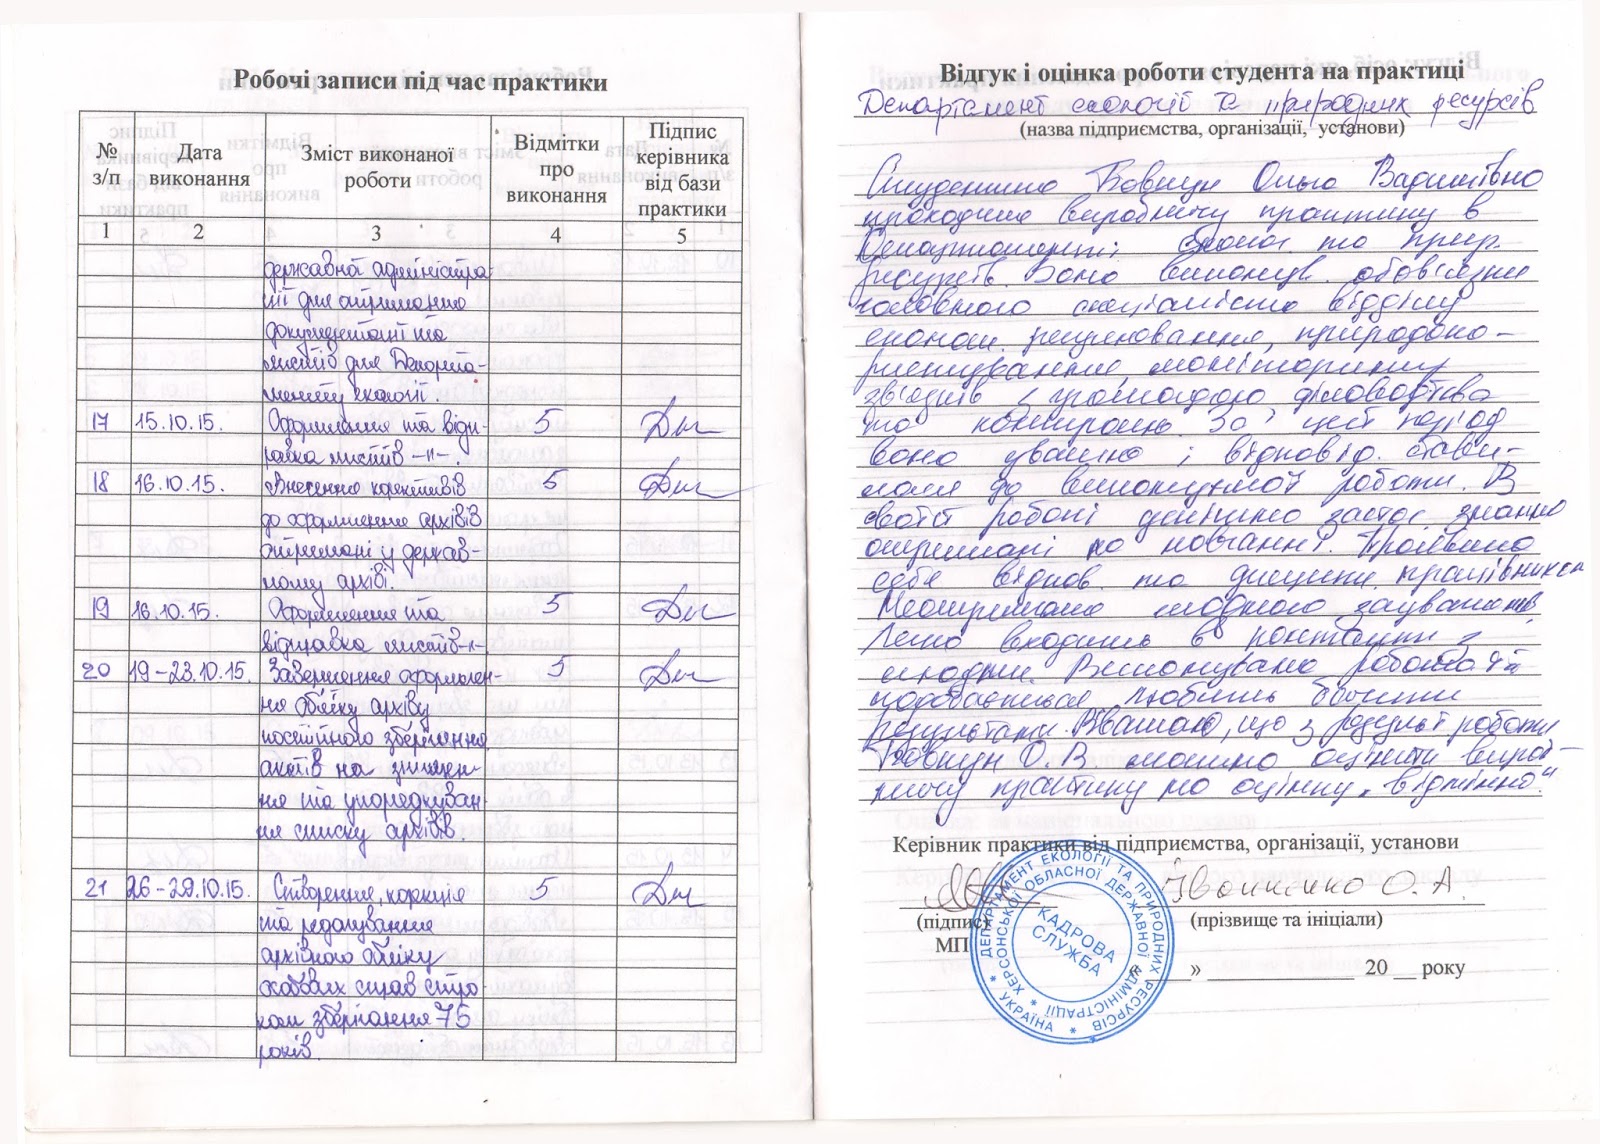 Робочі записи під час практики
№ з/п
Дата виконання
Зміст виконаної роботи
Відмітки про виконання
Підпис керівника від бази практики
1 2 3 4 5
державної адміністра-
ції для отримання
документації та
листів для Департа-
менту екології.
17 15.10.15. Оформлення та відп-
равка листів -//-. 5
18 16.10.15. Внесення корективів 5
до оформлення архівів
отримані у держав-
ному архіві.
19 16.10.15. Оформлення та 5
відправка листів -//-
20 19-23.10.15. Завершення оформлен- 5
ня обліку архіву
постійного зберігання
актів на знищен-
ня та упорядкуван-
ня списку архівів.
21 26-29.10.15. Створення, корекція 5
та редагування
архівного обліку
особових справ стро-
ком зберігання 75
років.
Відгук і оцінка роботи студента на практиці
Департамент екології та природних ресурсів
(назва підприємства, організації, установи)
Студентка Ковпун Ольга Вадимівна
проходила виробничу практику в
Департаменті екології та прир.
ресурсів. Вона виконув. обов'язки
головного спеціаліста відділу
економ. регулювання, природоко-
ристування, моніторингу
зв'язків з громадою, діловодства
та контролю. За цей період
вона уважно і відповід. стави-
лася до виконуємої роботи. В
своїй роботі успішно застос. знання
отримані на навчанні. Проявила
себе відпов. та дисципл. працівником
Неотримала жодного зауваження.
Легко входить в контакт з
людьми. Виконувана робота їй
подобається, любить бачити
результати. Вважаю, що з результ. роботи
Ковпун О.В. можно оцінити вироб-
ничу практику на оцінку „відмінно"
Керівник практики від підприємства, організації, установи
Іванченко О.А
(підпис) (прізвище та ініціали)
МП
» 20 року
ДЕПАРТАМЕНТ ЕКОЛОГІЇ ТА ПРИРОДНИХ РЕСУРСІВ * УКРАЇНА *
ХЕРСОНСЬКОЇ ОБЛАСНОЇ ДЕРЖАВНОЇ АДМІНІСТРАЦІЇ *
КАДРОВА
СЛУЖБА